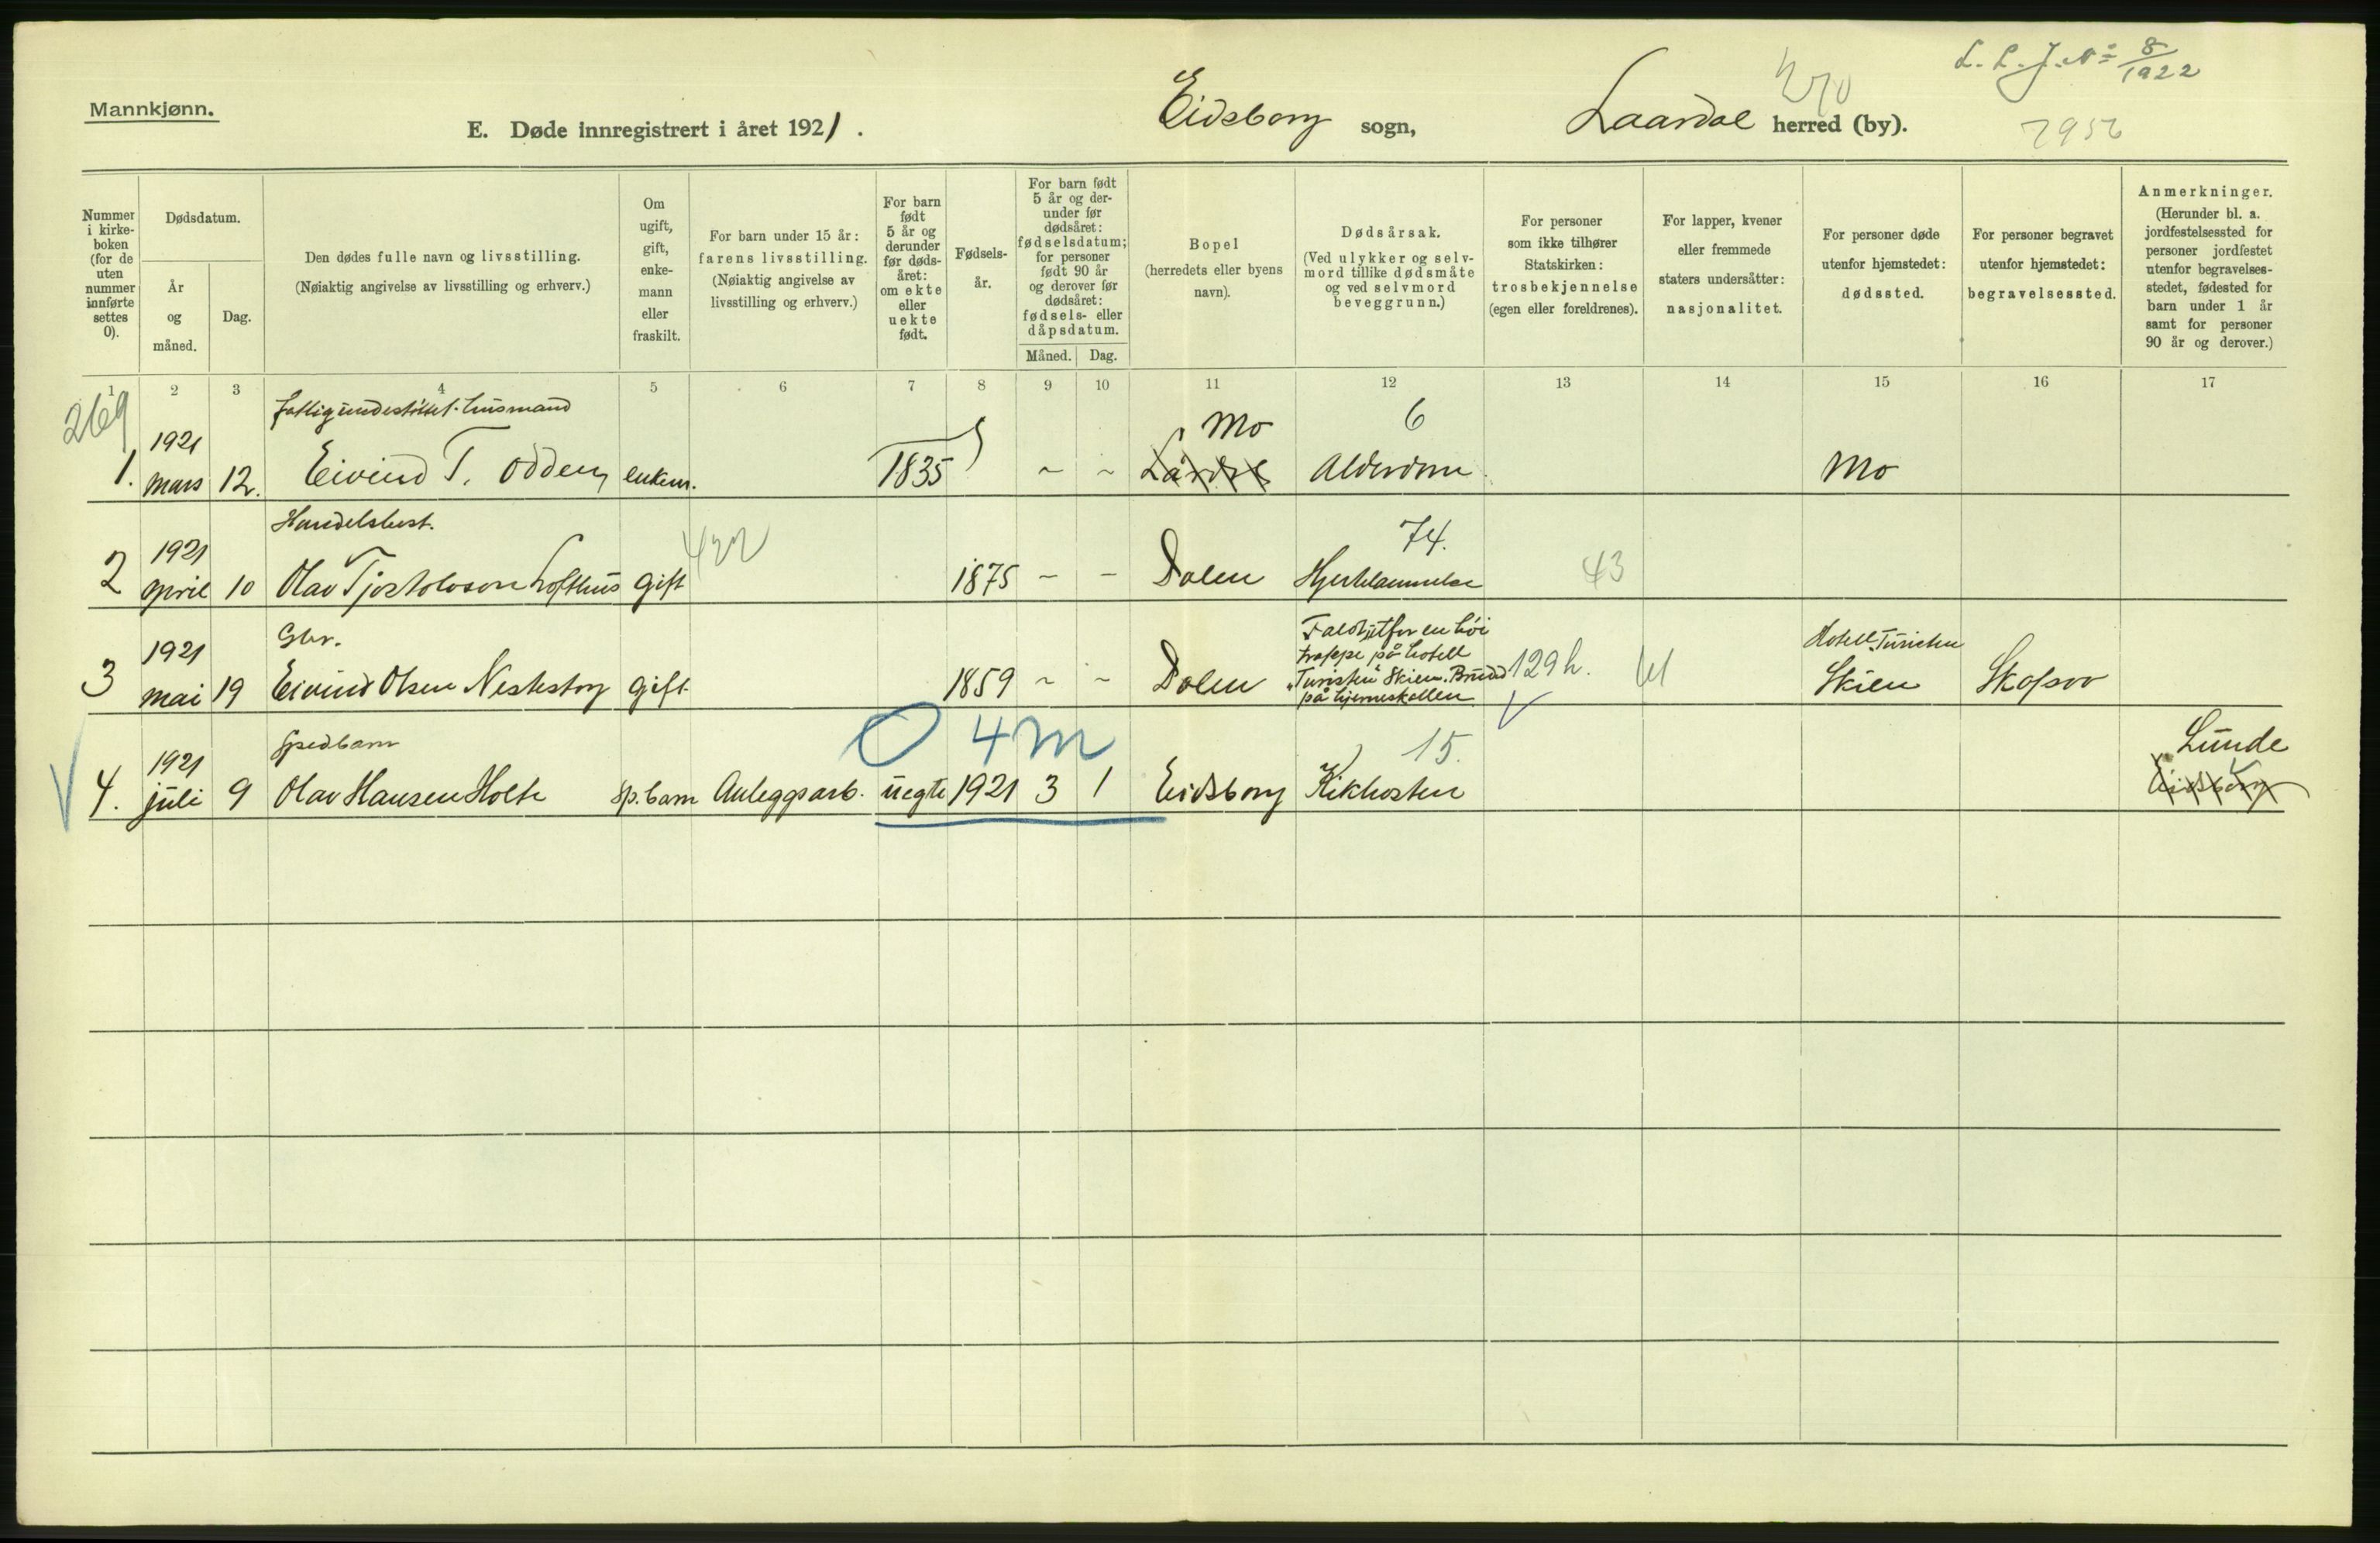 L. L. J. № 8/1922
Mannkjønn.
E. Døde innregistrert i året 1921.
Eidsborg sogn,
Laardal herred (by).
Nummer i kirkeboken (for de uten nummer innførte settes 0).
Dødsdatum.
År og måned.
Dag.
Den dødes fulle navn og livsstilling.
(Nøiaktig angivelse av livsstilling og erhverv.)
Om ugift, gift, enkemann eller fraskilt.
For barn under 15 år: farens livsstilling.
(Nøiaktig angivelse av livsstilling og erhverv.)
For barn født 5 år og derunder før dødsåret: om ekte eller uekte født.
Fødselsår.
For barn født 5 år og derunder før dødsåret: fødselsdatum; for personer født 90 år og derover før dødsåret: fødsels- eller dåpsdatum.
Måned.
Dag.
Bopel
(herredets eller byens navn).
Dødsårsak.
(Ved ulykker og selvmord tillike dødsmåte og ved selvmord beveggrunn.)
For personer som ikke tilhører Statskirken: trosbekjennelse (egen eller foreldrenes).
For lapper, kvener eller fremmede staters undersåtter: nasjonalitet.
For personer døde utenfor hjemstedet: dødssted.
For personer begravet utenfor hjemstedet: begravelsessted.
Anmerkninger.
(Herunder bl. a. jordfestelsessted for personer jordfestet utenfor begravelsesstedet, fødested for barn under 1 år samt for personer 90 år og derover.)
1 2 3 4 5 6 7 8 9 10 11 12 13 14 15 16 17
269
fattigunderstøttet. husmand
Mo
6
1. 1921 mars 12. Eivind T. Odden enkem. 1835 ~ ~ Lårdal Alderdom Mo
Handelsbest.
422
74.
2 1921 april 10 Olav Tjostolvson Lofthus gift 1875 – – Dalen Hjertelammelse 43
Gbr.
Faldt utfor en høi
trappe på hotell
"Turisten" Skien. Brudd
på hjerneskallen
3 1921 mai 19 Eivind Olsen Nestestog gift 1859 ~ ~ Dalen 129 h.
Hotell Turisten
Skien Skafsoo
0 4 m
Spedbarn
15.
Lunde
4. 1921 juli 9 Olav Hansen Holte sp.barn Anleggsarb. uegte 1921 3 1 Eidsborg Kikhosten Eidsborg